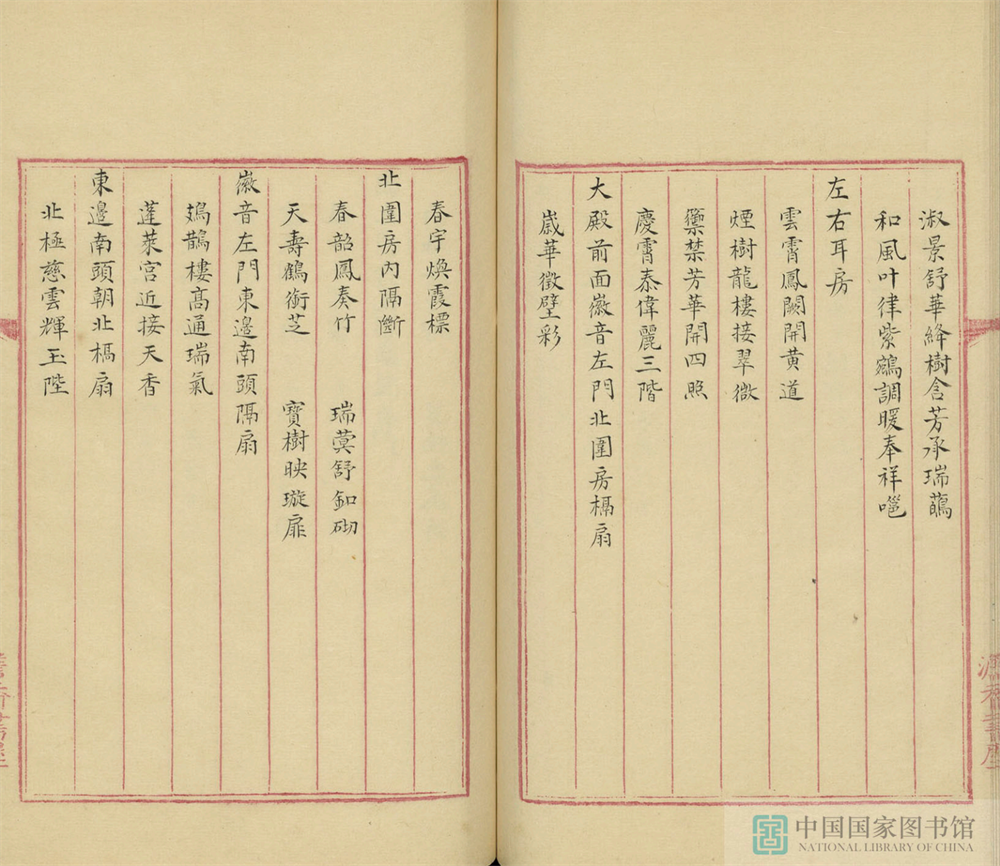 淑景舒華絳樹含芳承瑞靄
和風叶律紫鶴調暖奉祥邕
左右耳房
雲霄鳳闕開黄道
煙樹龍樓接翠微
籞禁芳華開四照
慶霄泰偉麗三階
大殿前面徽音左門北圍房槅扇
歲華徵壁彩
春宇煥霞標
北圍房内隔斷
春韶鳳奏竹 瑞蓂舒釦砌
天壽鶴銜芝 寳樹映璇扉
徽音左門東邊南頭隔扇
鳷鵲樓髙通瑞氣
蓬萊宫近接天香
東邊南頭朝北槅扇
北極慈雲輝玉陛
中国国家图书馆
NATIONAL LIBRARY OF CHINA